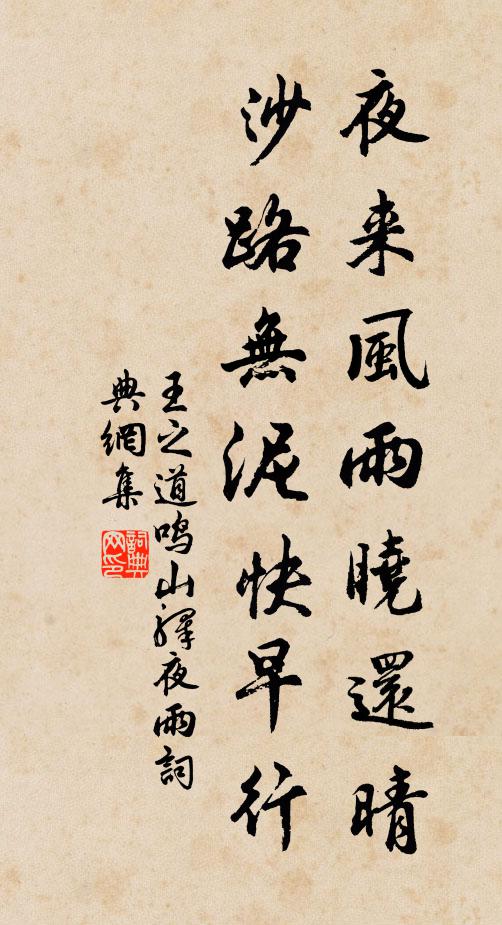 夜来風雨曉還晴
沙路無泥快早行
王之道鳴山驛夜雨詞
典網集
詞典
网印